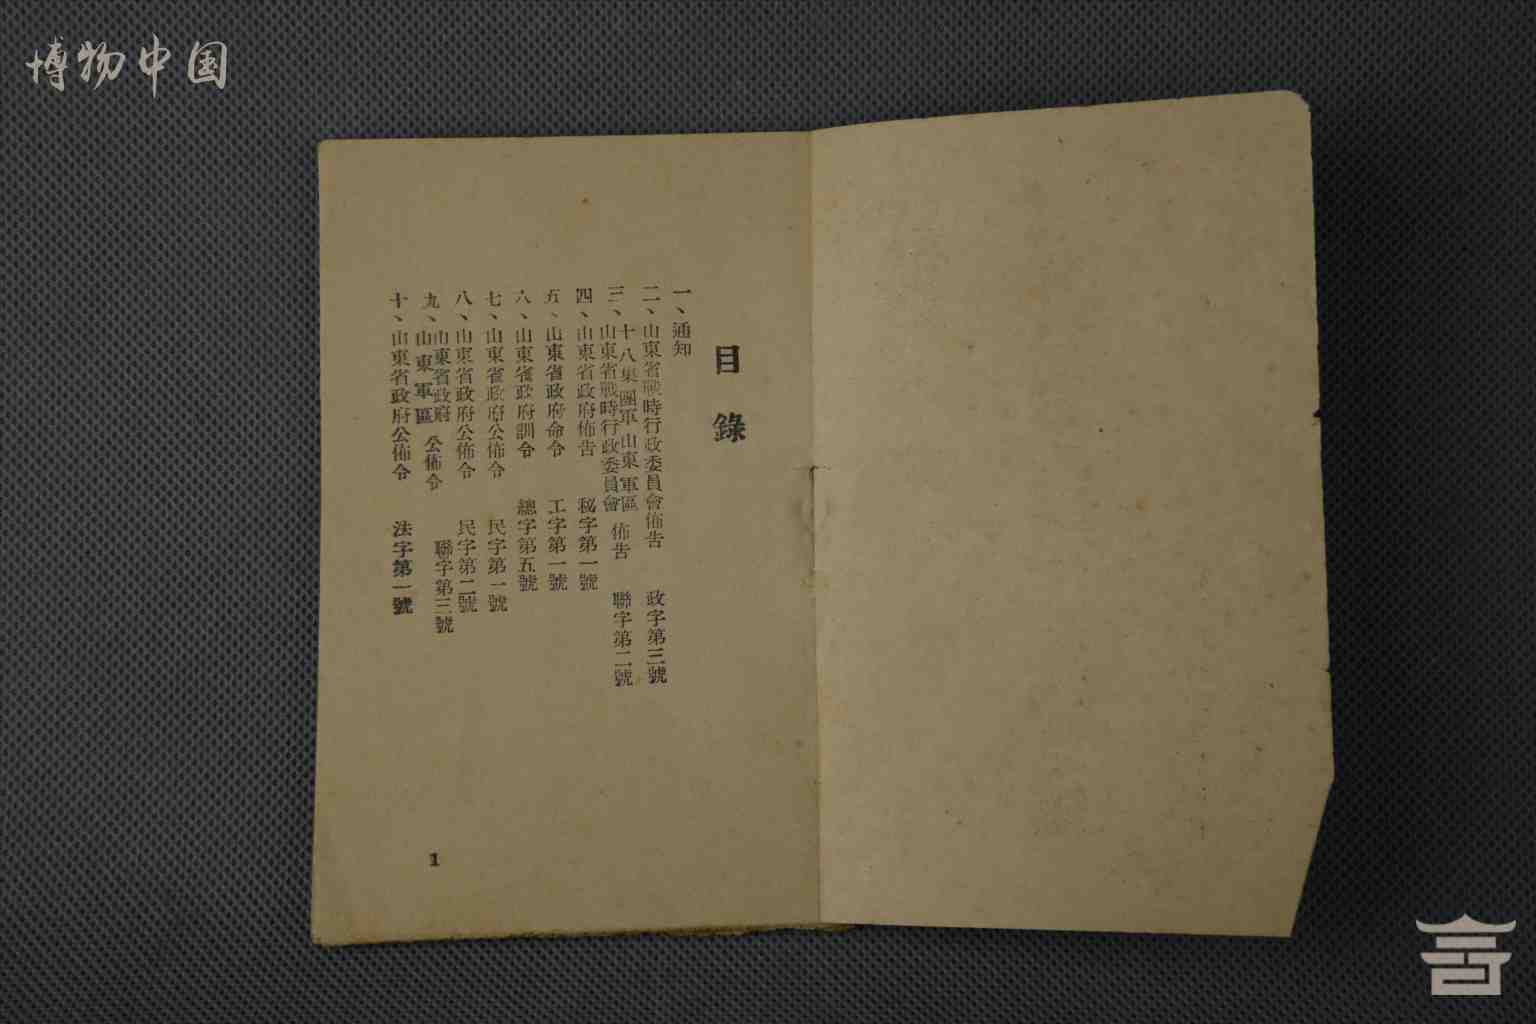 博物中国
目錄
一、通知
二、山東省戰時行政委員會佈告 政字第三號
三、十八集團軍山東軍區 山東省戰時行政委員會 佈告 聯字第二號
四、山東省政府佈告 秘字第一號
五、山東省政府命令 工字第一號
六、山東省政府訓令 總字第五號
七、山東省政府公佈令 民字第一號
八、山東省政府公佈令 民字第二號
九、山東省政府 山東軍區 公佈令 聯字第三號
十、山東省政府公佈令 法字第一號
1